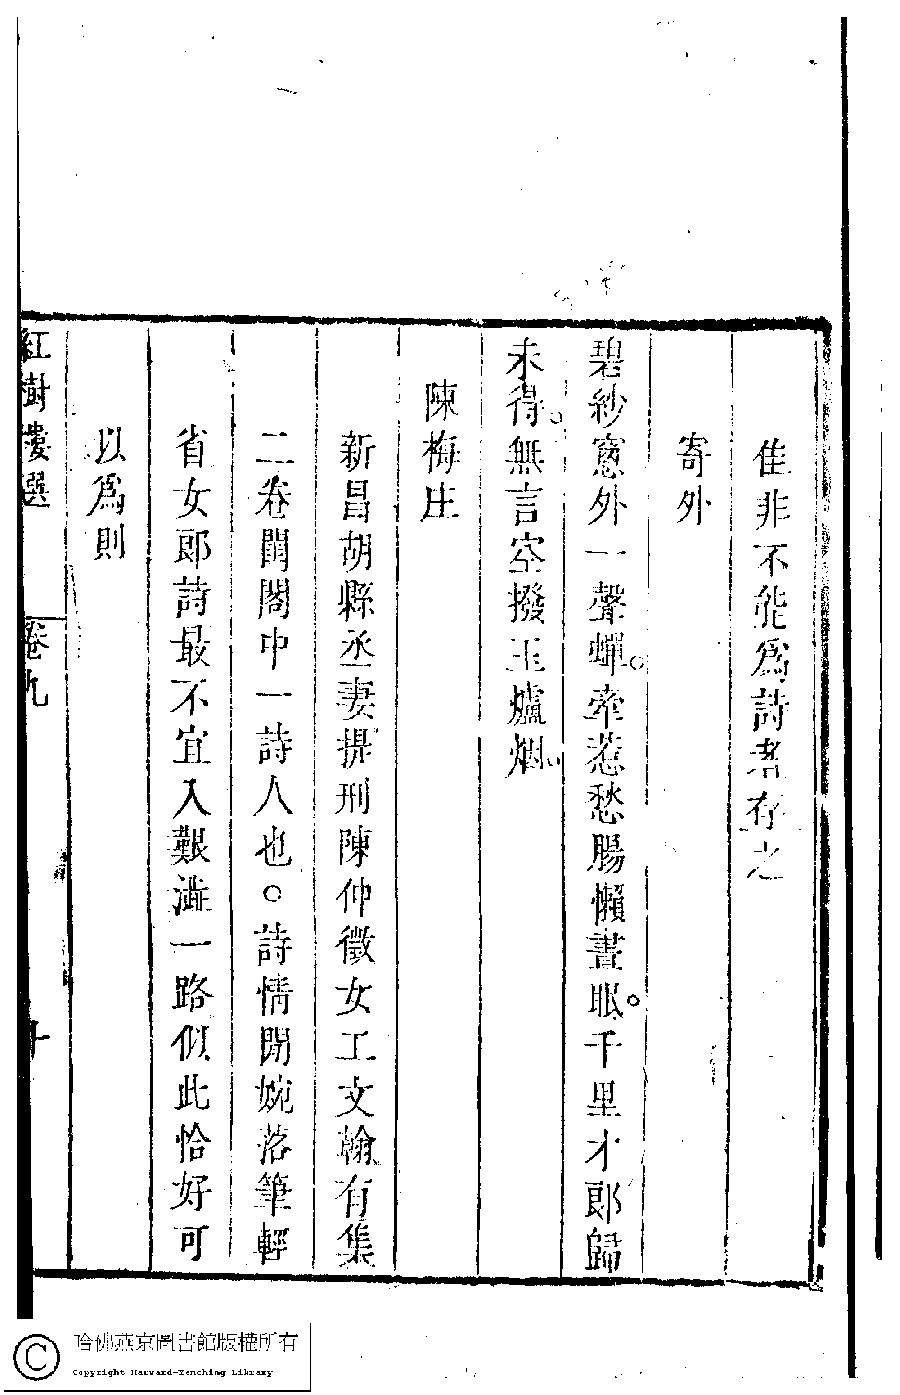 佳非不能爲詩者存之
寄外
碧紗窻外一聲蟬。牽惹愁腸懶晝眠。千里才郎歸
未得。無言空撥玉爐烟。
陳梅庄
新昌胡縣丞妻提刑陳仲微女工文翰有集
二卷閨閣中一詩人也。詩情閒婉落筆輕
省女郎詩最不宜入艱澁一路似此恰好可
以爲則
紅樹樓選 卷九
哈佛燕京圖書館版權所有
Copyright Harvard-Yenching Library